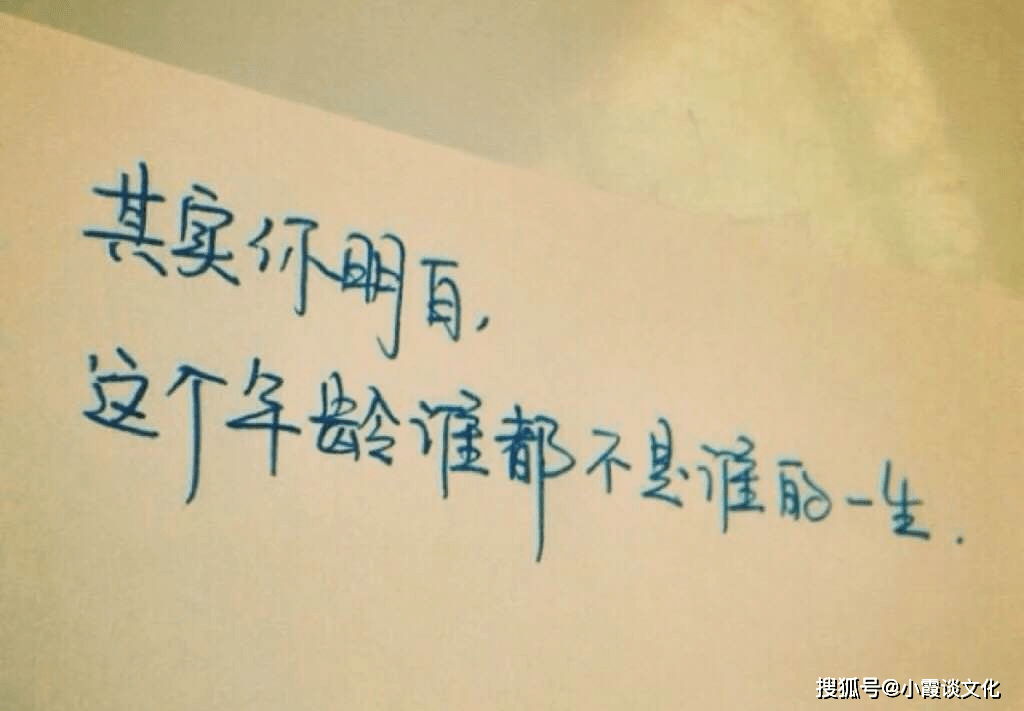 其实你明白，
这个年龄谁都不是谁的一生.
搜狐号@小霞谈文化